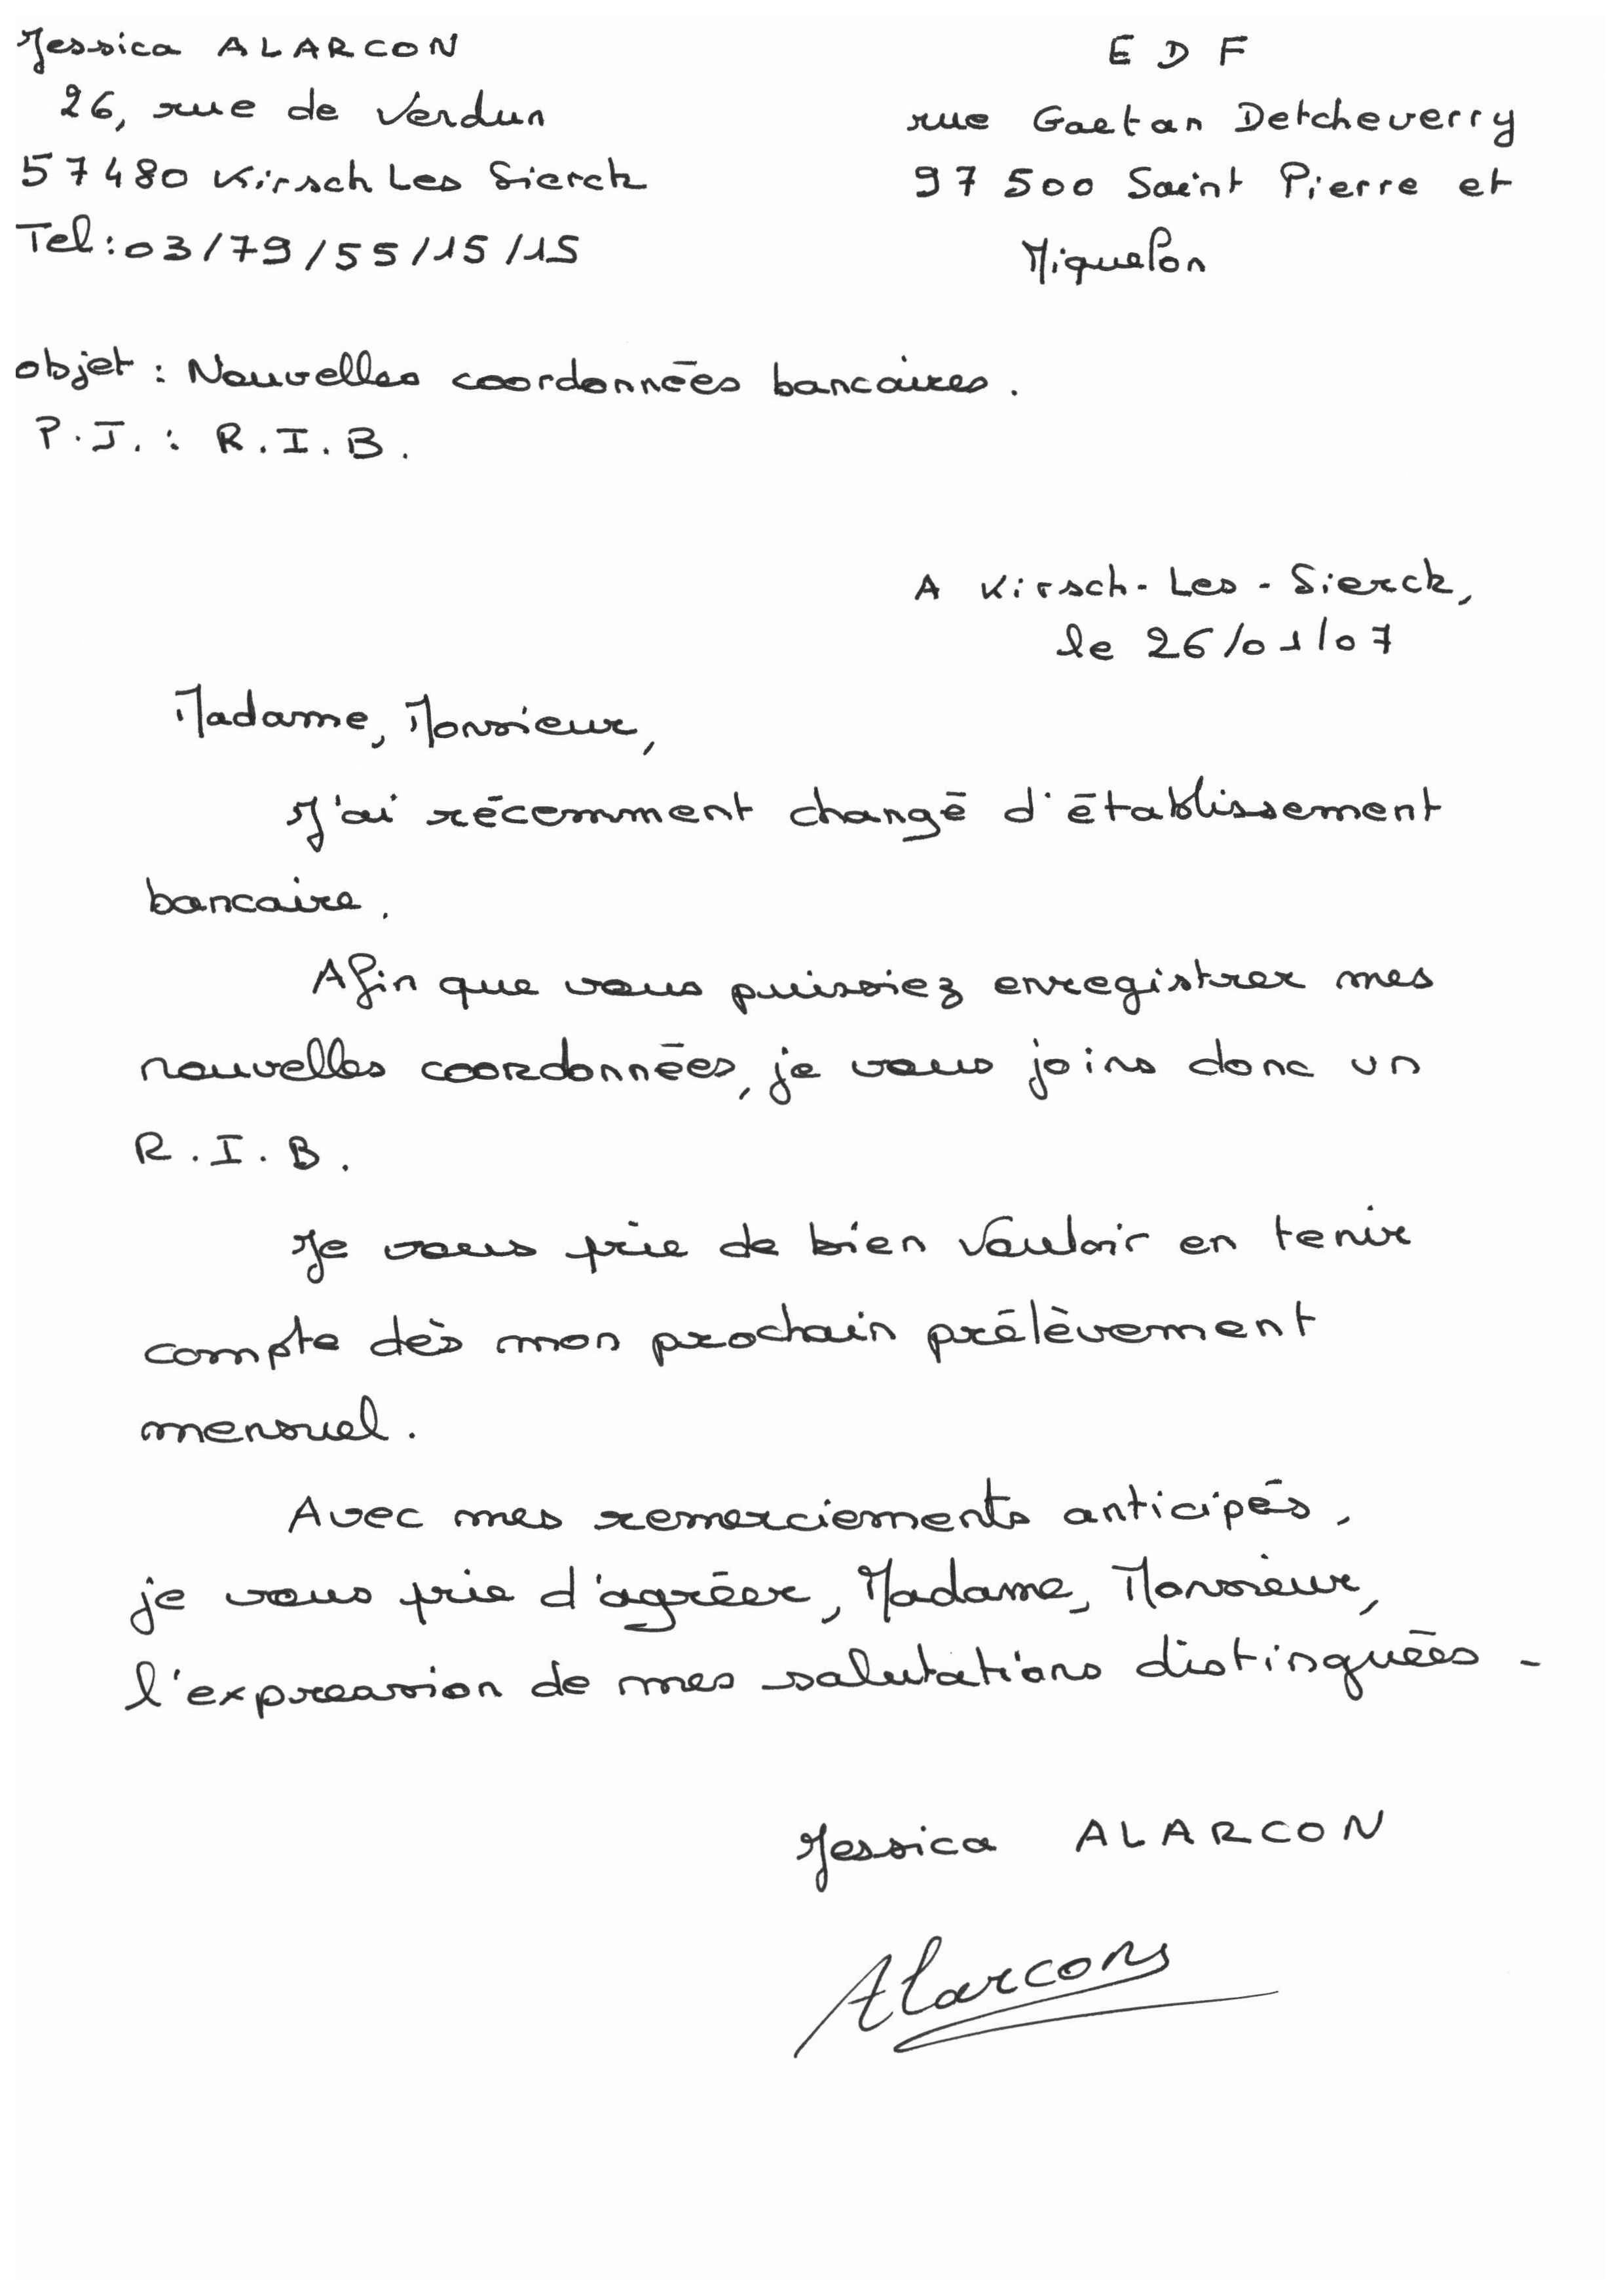 Jessica ALARCON
26, rue de Verdun
57480 Kirsch Les Sierck
Tel : 03/79/55/15/15
E D F
rue Gaetan Detcheverry
97 500 Saint Pierre et
Miquelon
objet : Nouvelles coordonnées bancaires.
P.J. : R.I.B.
A Kirsch-Les-Sierck,
le 26/01/07
Madame, Monsieur,
J'ai récemment changé d'établissement
bancaire.
Afin que vous puissiez enregistrer mes
nouvelles coordonnées, je vous joins donc un
R.I.B.
Je vous prie de bien vouloir en tenir
compte dès mon prochain prélèvement
mensuel.
Avec mes remerciements anticipés,
je vous prie d'agréer, Madame, Monsieur,
l'expression de mes salutations distinguées -
Jessica ALARCON
Alarcon